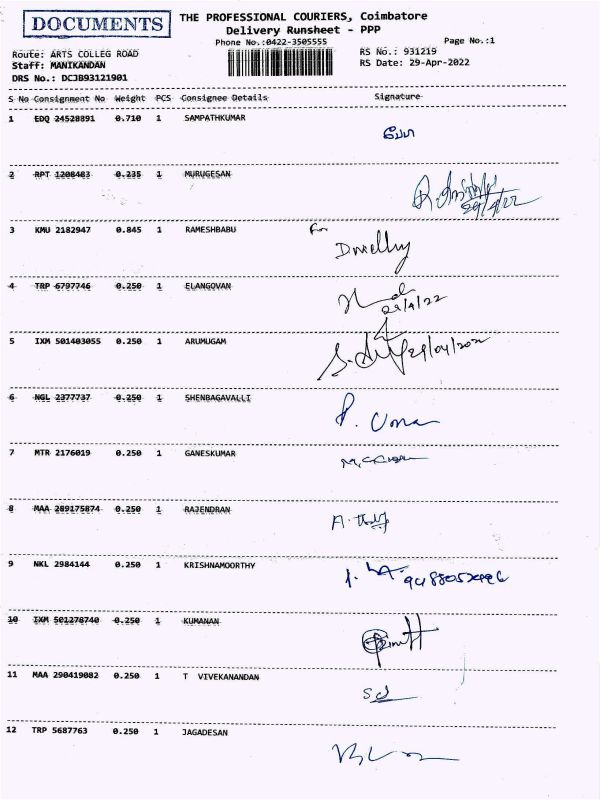 DOCUMENTS
THE PROFESSIONAL COURIERS, Coimbatore
Delivery Runsheet - PPP
Phone No.:0422-3505555 Page No.:1
Route: ARTS COLLEG ROAD RS No.: 931219
Staff: MANIKANDAN RS Date: 29-Apr-2022
DRS No.: DCJB93121901
S No Consignment No Weight PCS Consignee Details Signature
1 EDQ 24528891 0.710 1 SAMPATHKUMAR
2 RPT 1208483 0.235 1 MURUGESAN
29/4/22
3 KMU 2182947 0.845 1 RAMESHBABU for
4 TRP 6797746 0.250 1 ELANGOVAN
29/4/22
5 IXM 501403055 0.250 1 ARUMUGAM
29/04/202
6 NGL 2377737 0.250 1 SHENBAGAVALLI
P. Uma
7 MTR 2176019 0.250 1 GANESKUMAR
8 MAA 289175874 0.250 1 RAJENDRAN
9 NKL 2984144 0.250 1 KRISHNAMOORTHY
10 IXM 501278740 0.250 1 KUMANAN
11 MAA 290419082 0.250 1 T VIVEKANANDAN
12 TRP 5687763 0.250 1 JAGADESAN